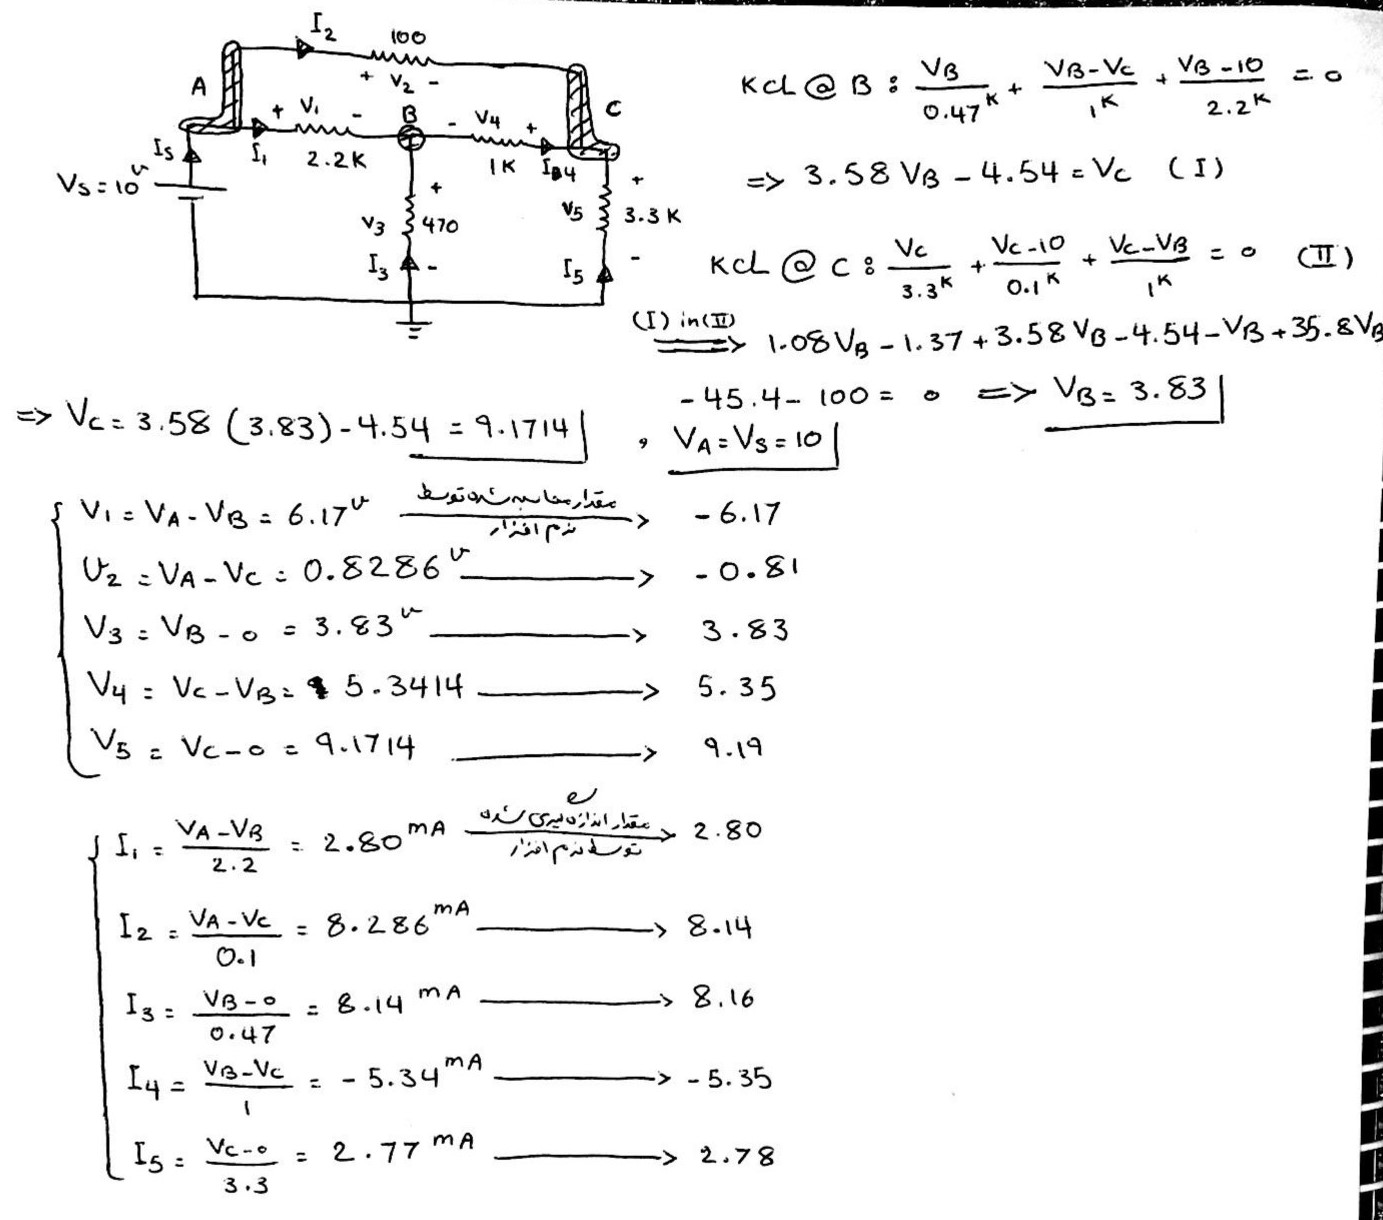 I2
100
+ V2 -
A
C
+ V1 -
B
- V4 +
Is
I1
2.2K
1K
IB4
Vs = 10v
+
V3
470
-
I3
+
V5
3.3K
-
I5
KCL @ B : VB/0.47K + (VB-VC)/1K + (VB-10)/2.2K = 0
=> 3.58 VB - 4.54 = VC (I)
KCL @ C : VC/3.3K + (VC-10)/0.1K + (VC-VB)/1K = 0 (II)
(I) in (II) => 1.08VB - 1.37 + 3.58 VB - 4.54 - VB + 35.8VB
-45.4 - 100 = 0 => VB = 3.83
=> VC = 3.58 (3.83) - 4.54 = 9.1714 , VA = VS = 10
V1 = VA - VB = 6.17v مقدار محاسبه شده توسط نرم افزار -> -6.17
V2 = VA - VC = 0.8286v -> -0.81
V3 = VB - 0 = 3.83v -> 3.83
V4 = VC - VB = 5.3414 -> 5.35
V5 = VC - 0 = 9.1714 -> 9.19
I1 = (VA-VB)/2.2 = 2.80 mA مقدار اندازه گیری شده توسط نرم افزار -> 2.80
I2 = (VA-VC)/0.1 = 8.286 mA -> 8.14
I3 = (VB-0)/0.47 = 8.14 mA -> 8.16
I4 = (VB-VC)/1 = -5.34 mA -> -5.35
I5 = (VC-0)/3.3 = 2.77 mA -> 2.78